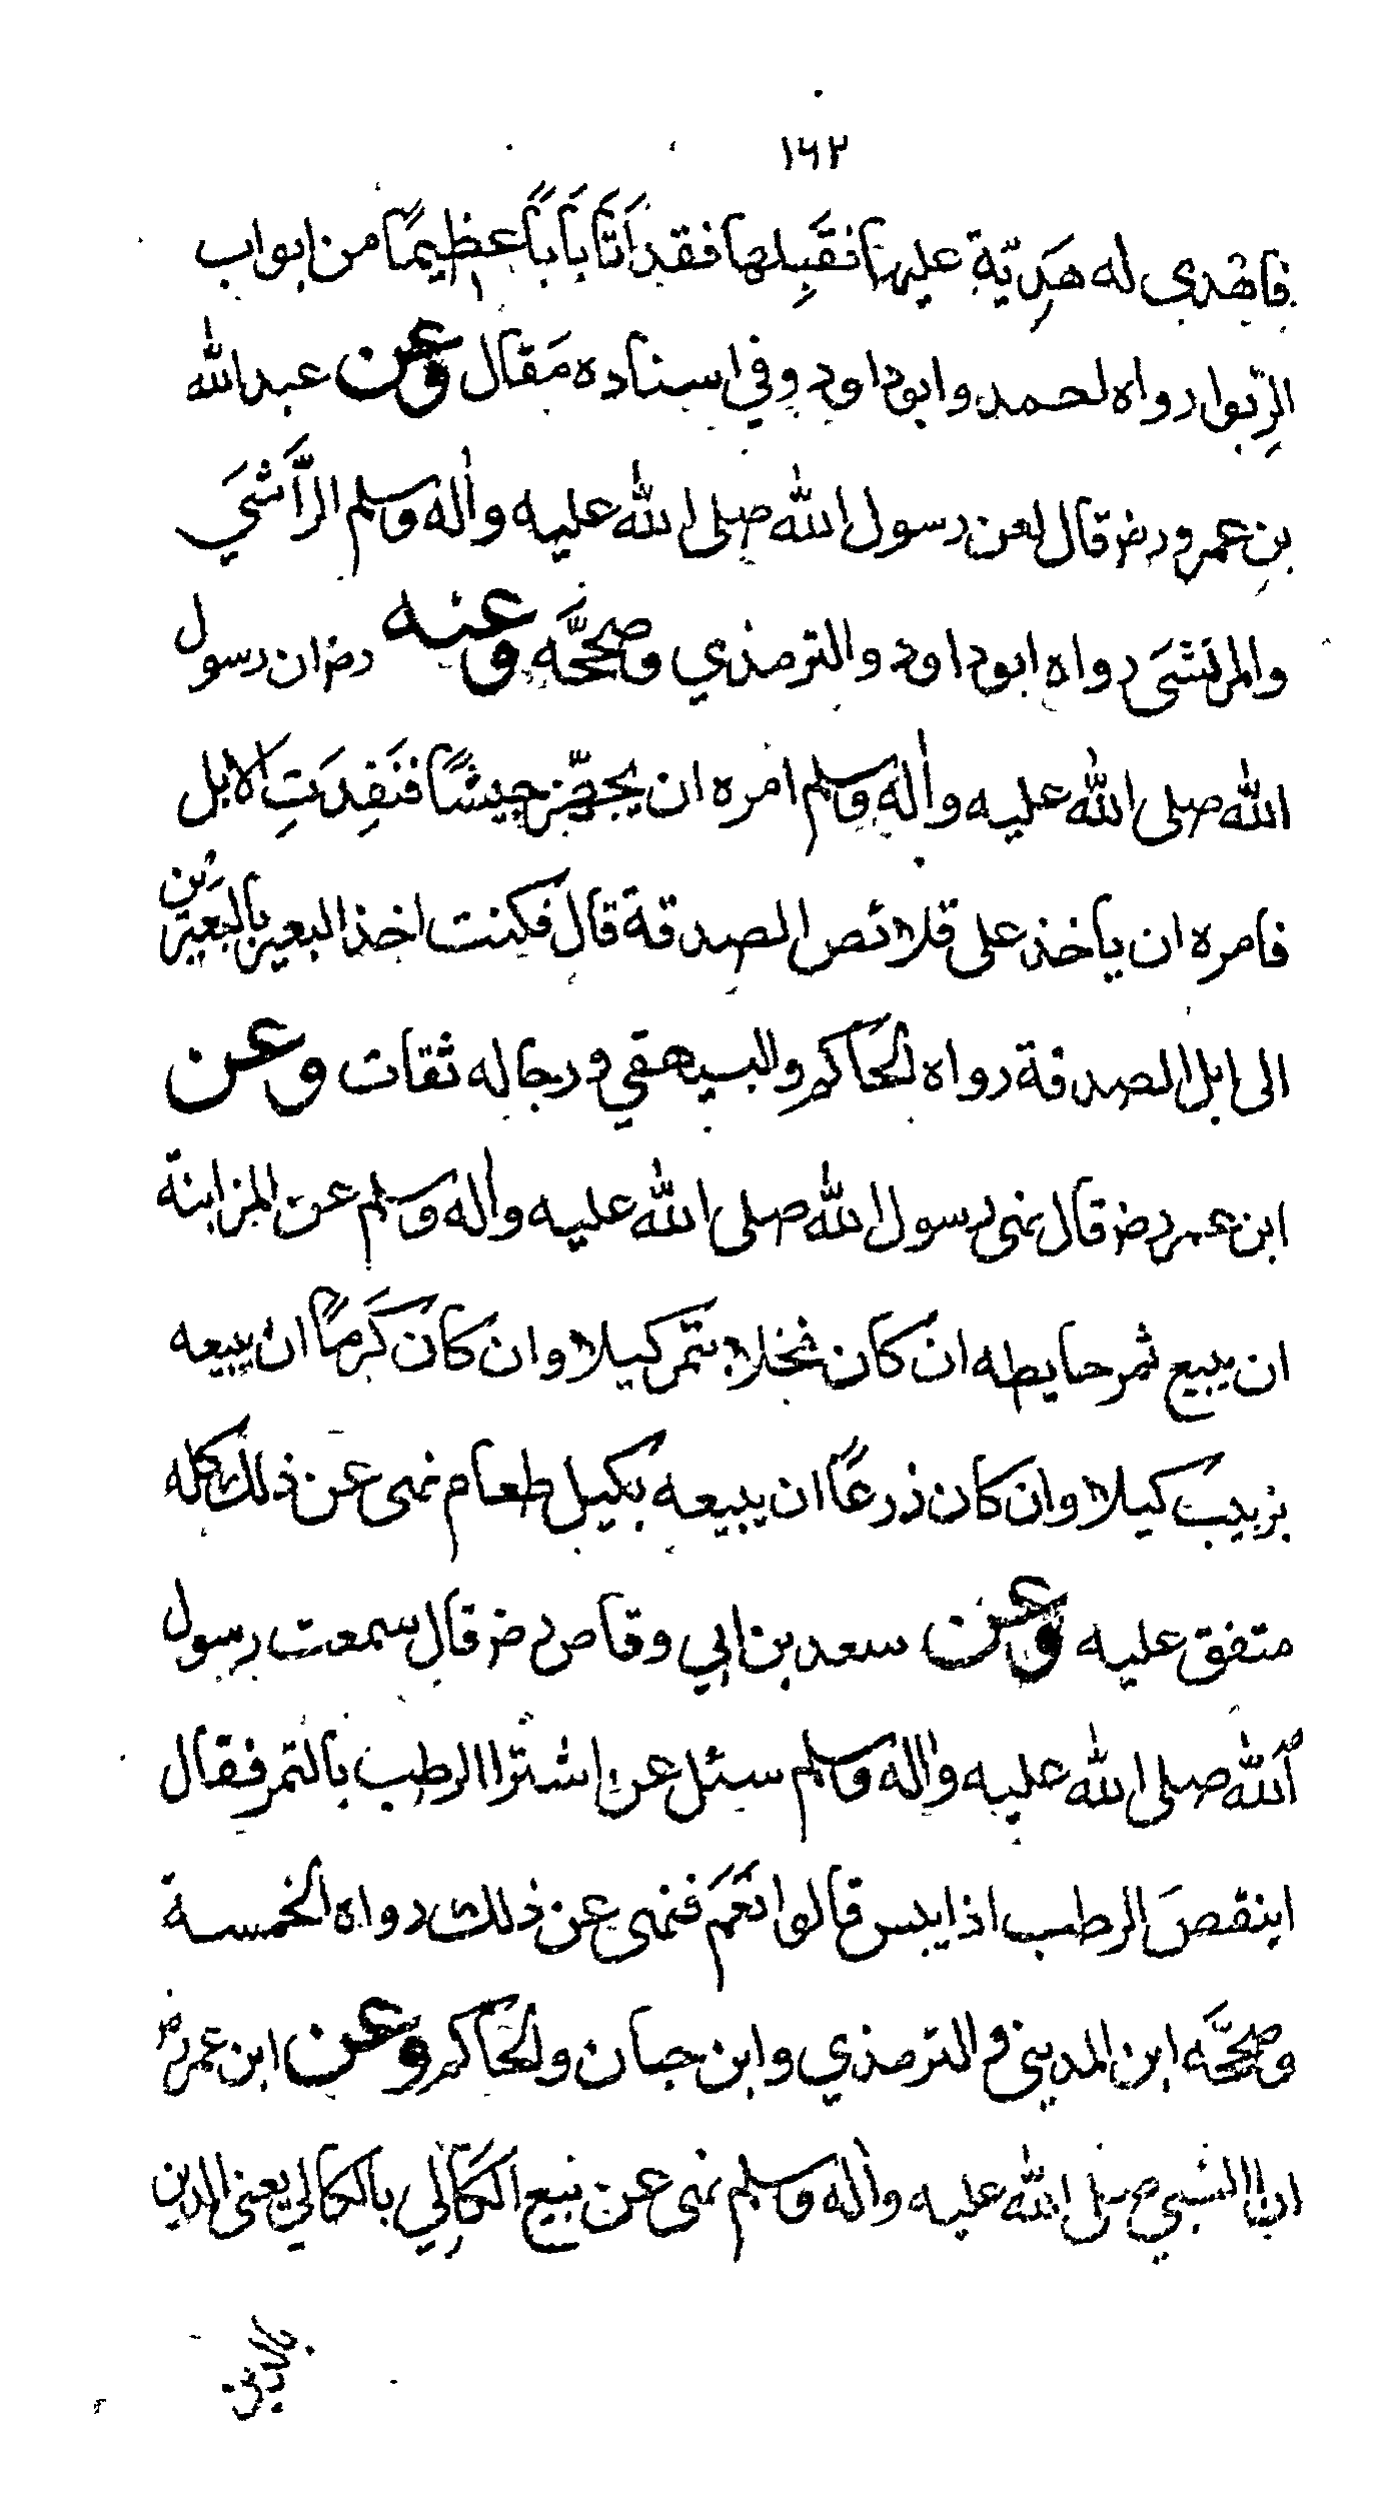 ١٦٢
فاهدى له هَدِيّة عليها فقَبِلها فقد اَتَا بَاباً عظيمًا من ابواب
الرِّبوا رواه احمد وابو داود وفي اسناده مَقال وعن عبد الله
بن عمرو رض قال لعن رسول الله صلى الله عليه واله وسلم الرَّاشَي
والمرتشَى رواه ابو داود والترمذي وصحّحَه وعنه رض ان رسول
الله صلى الله عليه واله وسلم امره ان يجهّز جيشًا فنَفِدَتِ الابل
فامره ان ياخذ على قلائص الصدقة قال فكنت اخذ البعير بالبَعيرَين
الى ابل الصدقة رواه الحاكم والبيهقي ورجاله ثقات وعن
ابن عمر رض قال نهى رسول الله صلى الله عليه واله وسلم عن المزابنة
ان يبيع ثمر حايطه ان كان نخلا بتمر كيلا وان كان كَرمًا ان يبيعه
بزبيب كيلا وان كان ذرعًا ان يبيعه بكيل طعام نهى عن ذلك كله
متفق عليه وعن سعد بن ابي وقاص رض قال سمعت رسول
الله صلى الله عليه واله وسلم سئل عن اشترا الرطب بالتمر فقال
اينقصَ الرطب اذا يبس قالوا نَعَم فنهى عن ذلك رواه الخمسة
وصحّحَه ابن المديني والترمذي وابن حبان والحاكم وعن ابن عمر رض
ان النبي صلى الله عليه واله وسلم نهى عن بيع الكَالِي بالكالي يعنى الدين